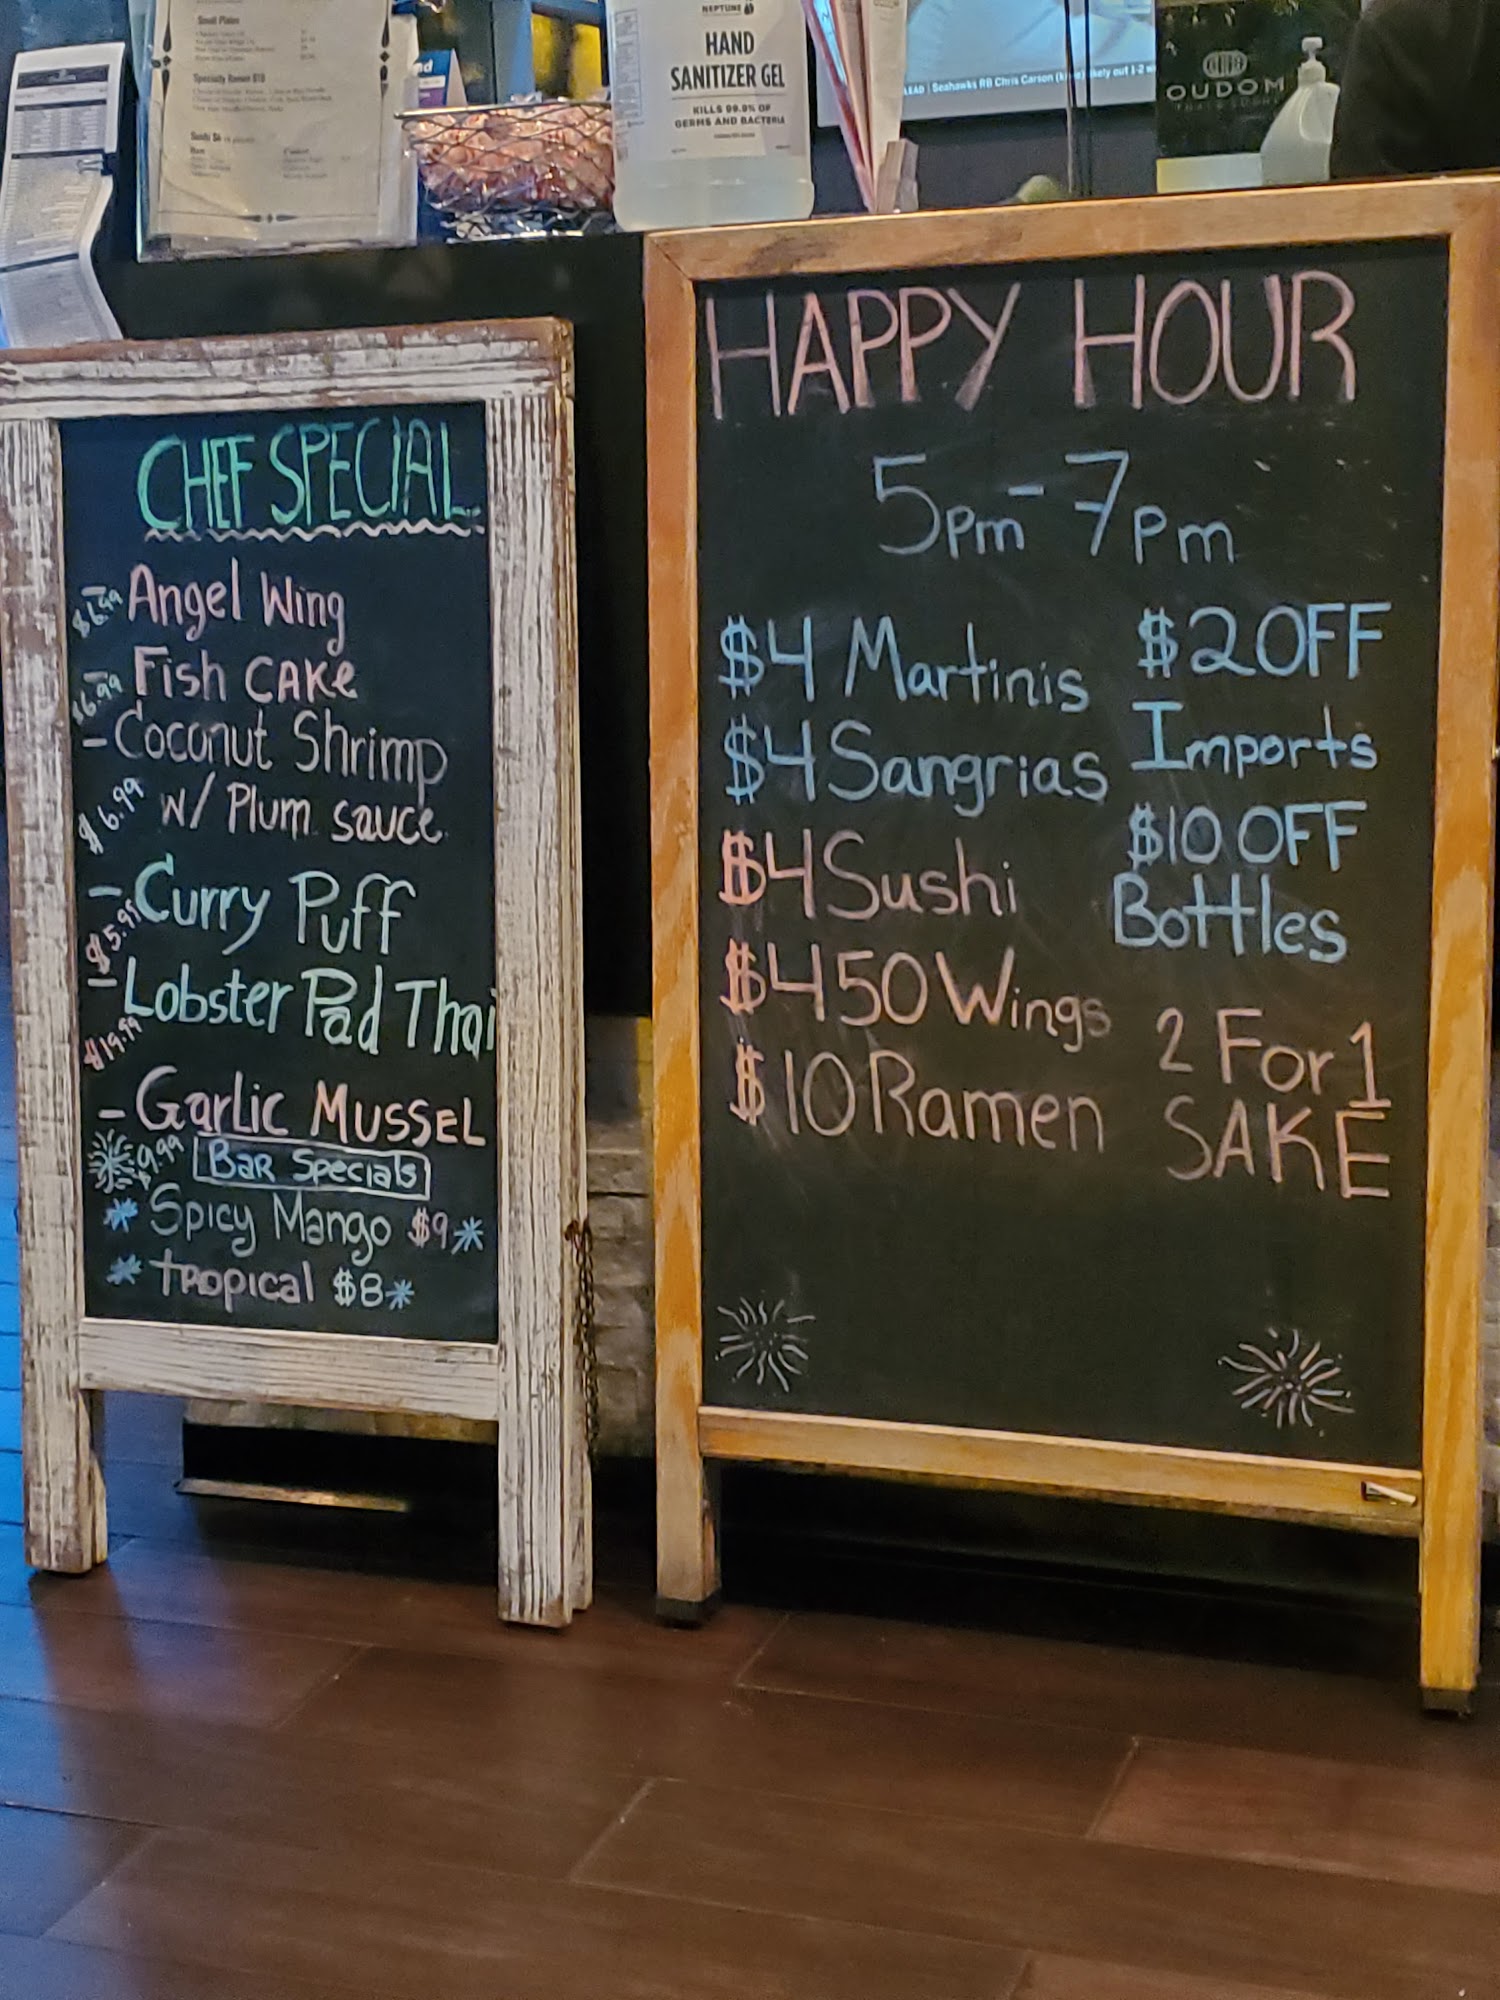 Small Plates
Specialty Ramen $10
NEPTUNE
HAND
SANITIZER GEL
KILLS 99.9% OF
GERMS AND BACTERIA
LEAD | Seahawks RB Chris Carson (knee) likely out 1-2 w
OUDOM
CHEF SPECIAL
- Angel Wing
$6.99
- Fish CAKe
$6.99
- Coconut Shrimp
w/ Plum sauce
$6.99
- Curry Puff
$5.95
- Lobster Pad Thai
$19.99
- Garlic Mussel
$9.99
Bar Specials
* Spicy Mango $9 *
* tropical $8 *
HAPPY HOUR
5pm - 7pm
$4 Martinis
$4 Sangrias
$4 Sushi
$450 Wings
$10 Ramen
$2 OFF
Imports
$10 OFF
Bottles
2 For 1
SAKE